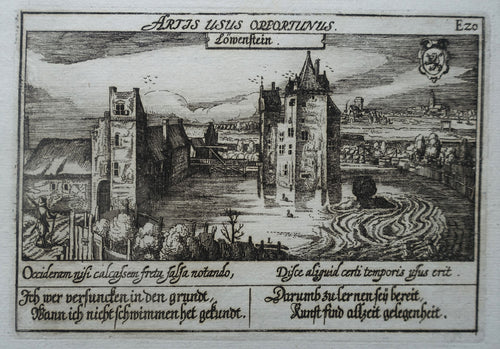 ARTIS USUS OPPORTUNUS.
E20
Löwenstein.
Occideram nisi calcassem freta salsa notando,
Disce aliquid certi temporis usus erit.
Ich wer versuncken in den grundt,
Wann ich nicht schwimmen het gekundt.
Darumb zu lernen seÿ bereit,
Kunst find allzeit gelegenheit.